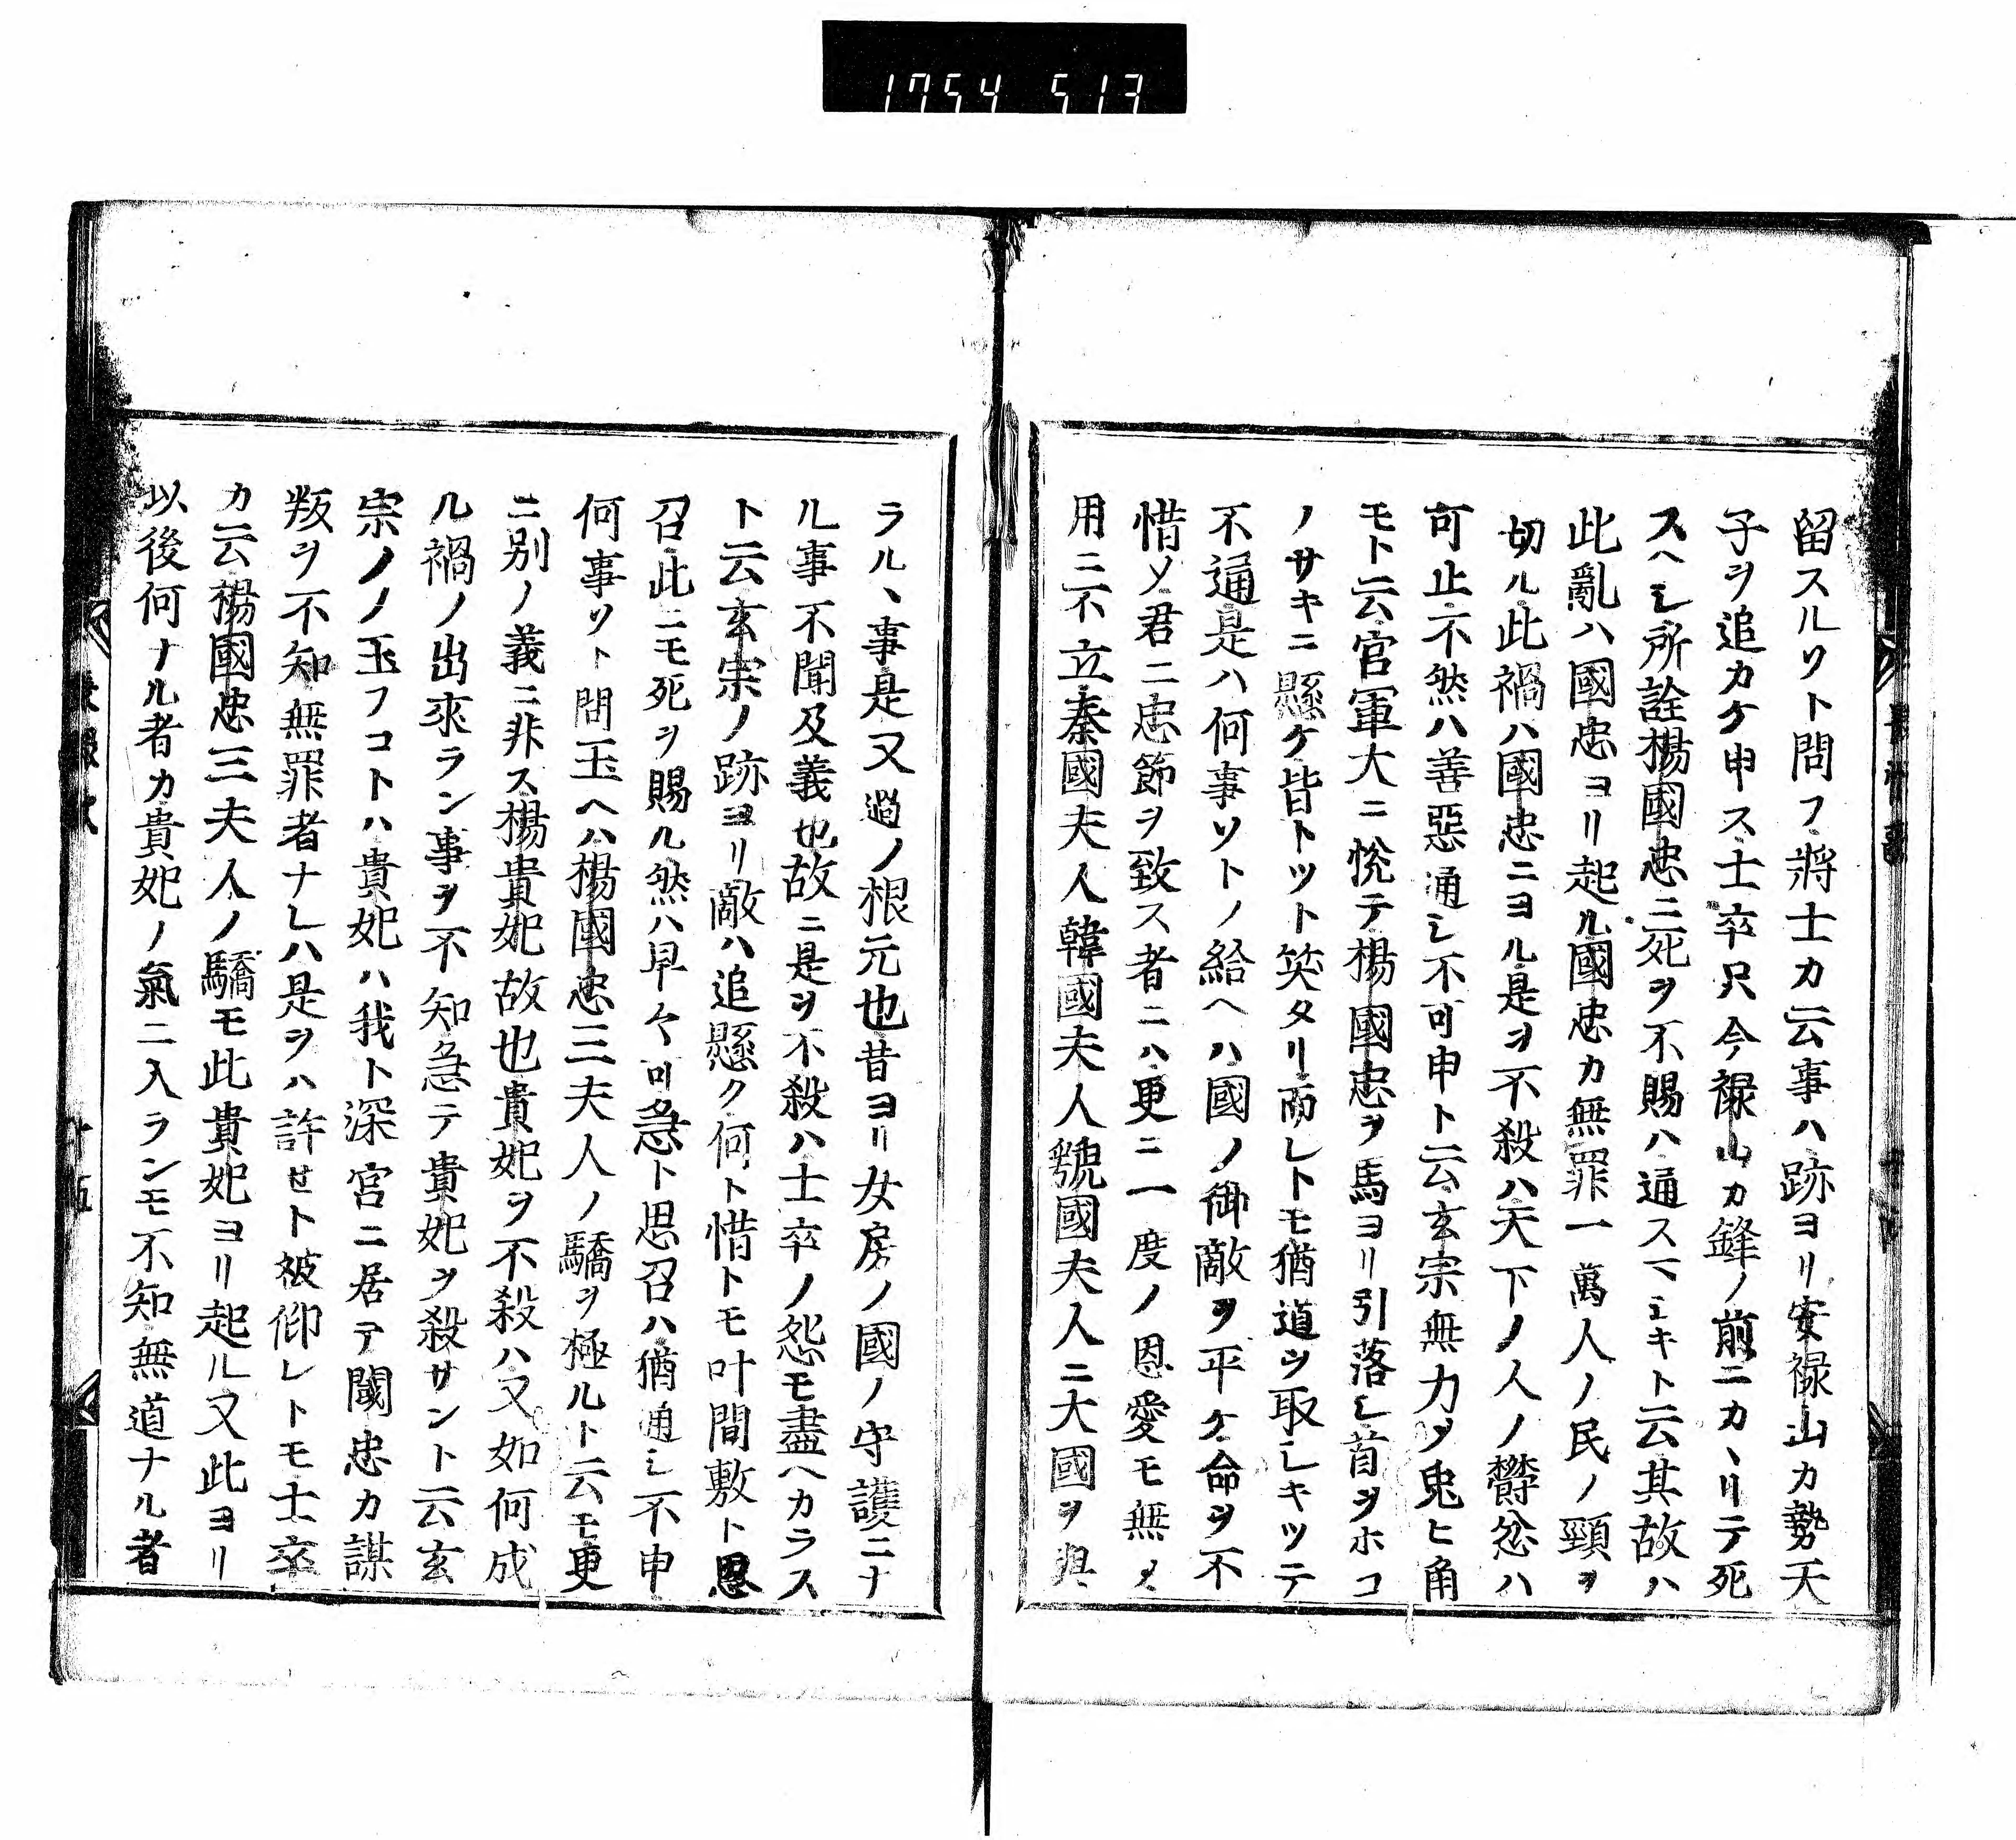 1754 513
留スルソト問フ將士カ云事ハ跡ヨリ安禄山カ勢天
子ヲ追カケ申ス士卒只今禄山カ鋒ノ前ニカヽリテ死
スヘシ所詮楊國忠ニ死ヲ不賜ハ通スマシキト云其故ハ
此亂ハ國忠ヨリ起ル國忠カ無罪一萬人ノ民ノ頸ヲ
切ル此禍ハ國忠ニヨル是ヲ不殺ハ天下ノ人ノ欝忿ハ
可止不然ハ善惡通シ不可申ト云玄宗無力メ兎ヒ角
モト云官軍大ニ悦テ楊國忠ヲ馬ヨリ引落シ首ヲホコ
ノサキニ懸ケ皆トツト笑タリ而レトモ猶道ヲ取シキツテ
不通是ハ何事ソトノ給ヘハ國ノ御敵ヲ平ケ命ヲ不
惜ソ君ニ忠節ヲ致ス者ニハ更ニ一度ノ恩愛モ無メ
用ニ不立秦國夫人韓國夫人虢國夫人ニ大國ヲ與
ラルヽ事是又過ノ根元也昔ヨリ女房ノ國ノ守護ニナ
ル事不聞及義也故ニ是ヲ不殺ハ士卒ノ怨モ盡ヘカラス
ト云玄宗ノ跡ヨリ敵ハ追懸ク何ト惜トモ叶間敷ト思
召此ニモ死ヲ賜ル然ハ早々可急ト思召ハ猶通シ不申
何事ソト問玉ヘハ楊國忠三夫人ノ驕ヲ極ルト云モ更
ニ別ノ義ニ非ス楊貴妃故也貴妃ヲ不殺ハ又如何成
ル禍ノ出來ラン事ヲ不知急テ貴妃ヲ殺サント云玄
宗ノノ玉フコトハ貴妃ハ我ト深宮ニ居テ國忠カ謀
叛ヲ不知無罪者ナレハ是ヲハ許セト被仰レトモ士卒
カ云楊國忠三夫人ノ驕モ此貴妃ヨリ起ル又此ヨリ
以後何ナル者カ貴妃ノ氣ニ入ランモ不知無道ナル者